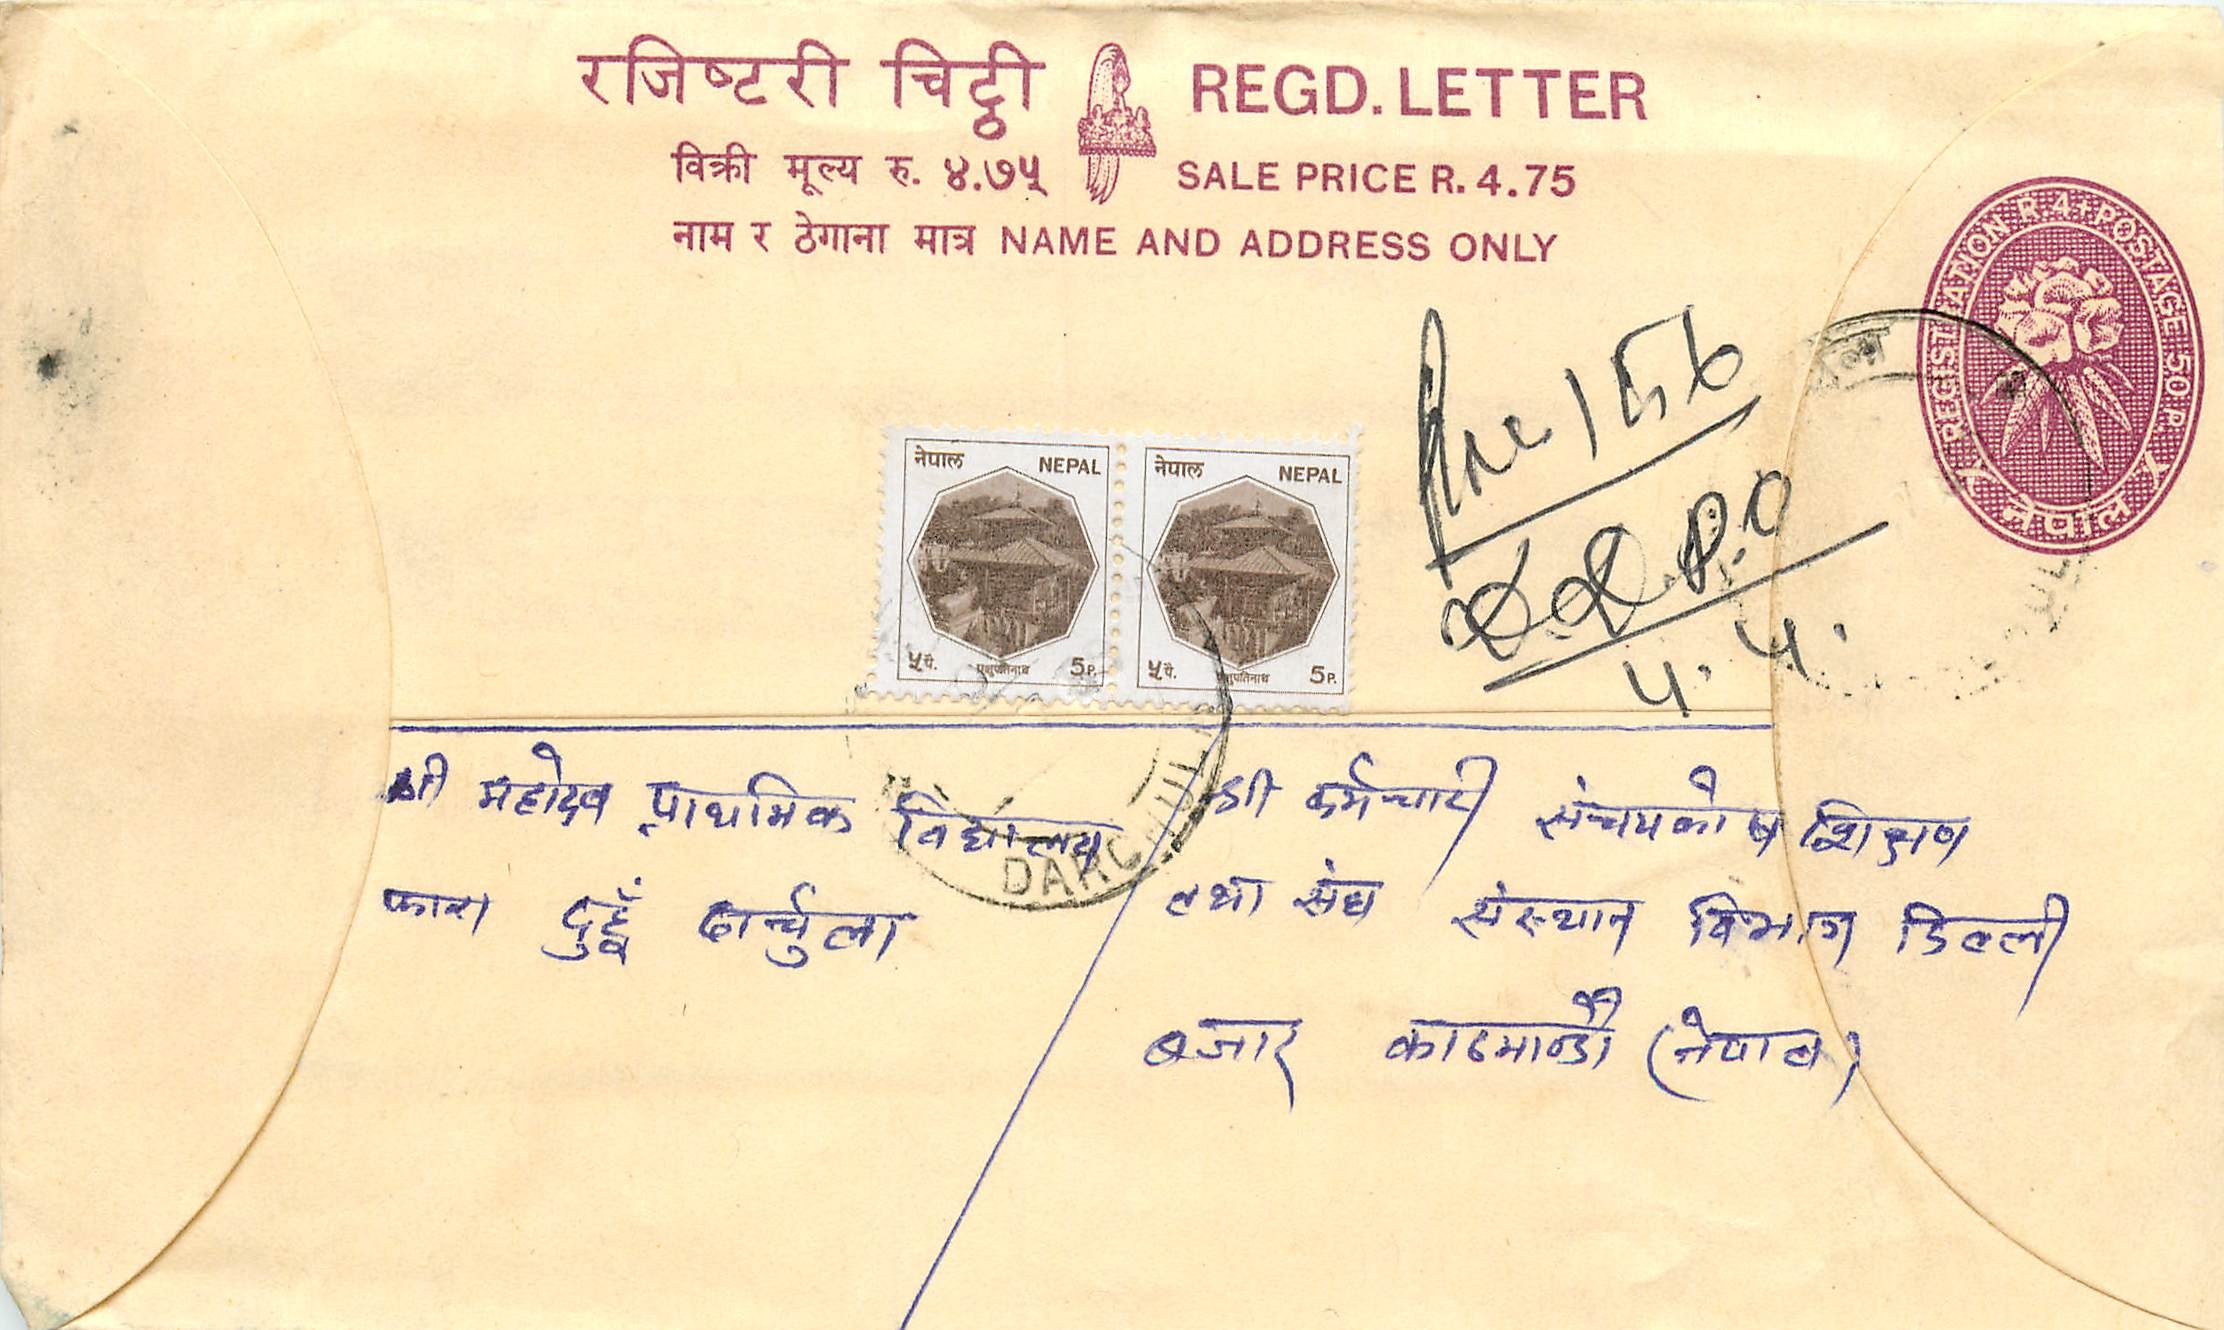 रजिष्टरी चिट्ठी REGD. LETTER
विक्री मूल्य रु. ४.७५ SALE PRICE R. 4.75
नाम र ठेगाना मात्र NAME AND ADDRESS ONLY
REGISTRATION R. 4+POSTAGE 50 P.
नेपाल
नेपाल NEPAL
५ पै. पशुपतिनाथ 5P.
नेपाल NEPAL
५ पै. पशुपतिनाथ 5P.
श्री महादेव प्राथमिक विद्यालय
दुहुँ दार्चुला
DARCHULA
श्री कर्मचारी संचयकोष शिक्षण
तथा संघ संस्थान विभाग डिल्ली
बजार काठमाण्डौ (नेपाल)